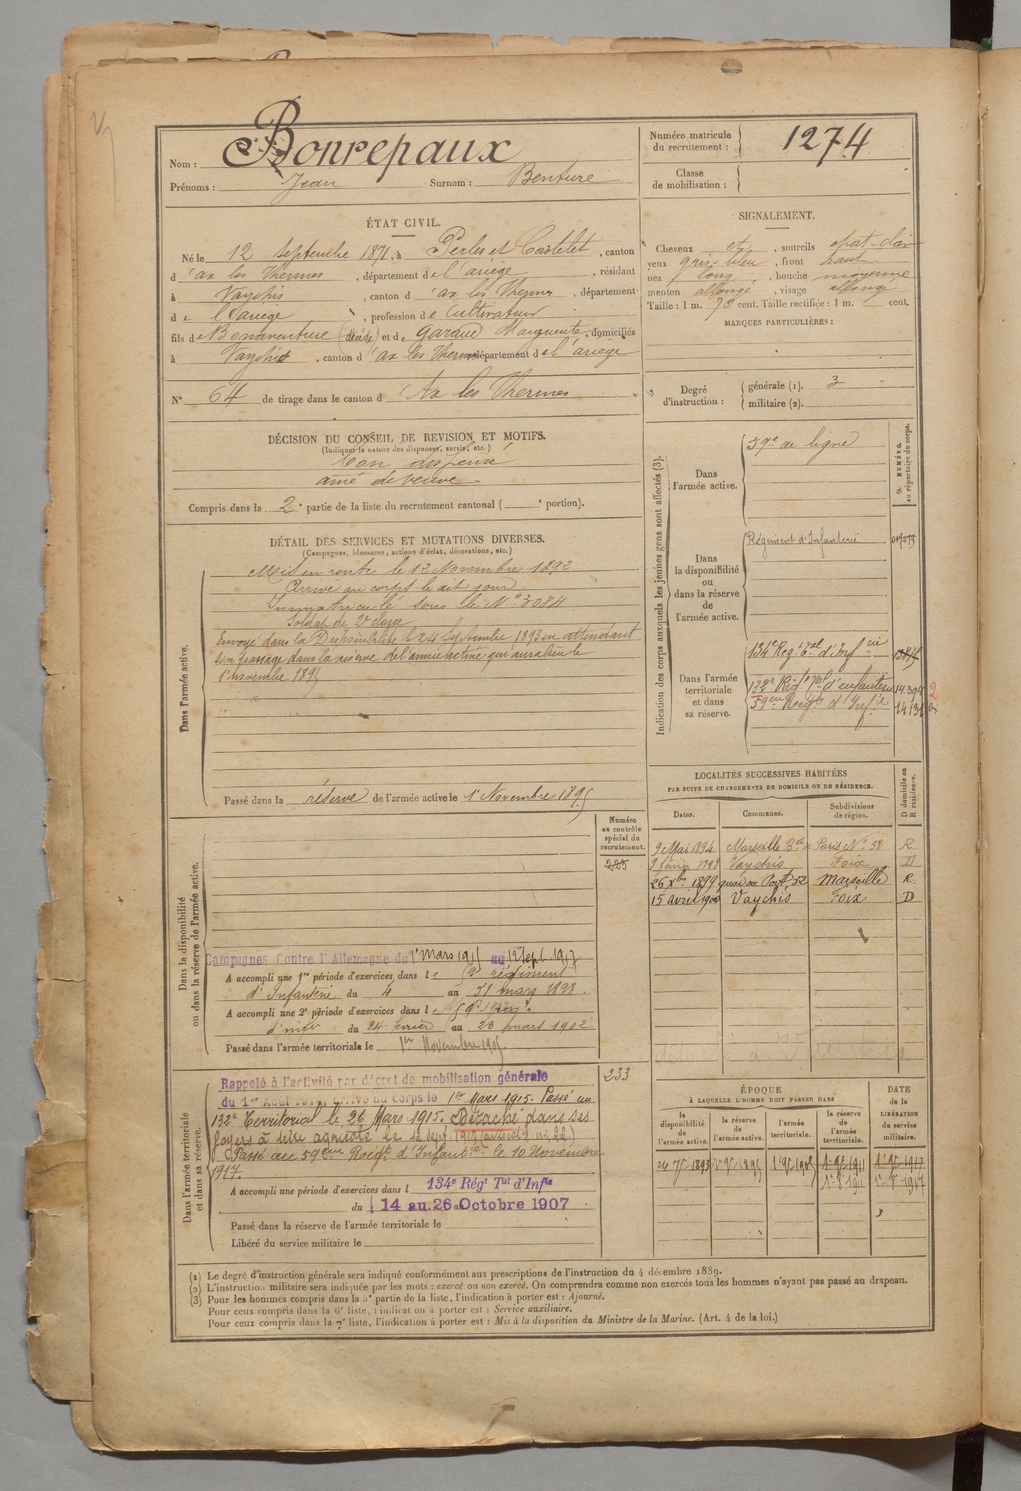 Nom : Bonrepaux
Prénoms : Jean Surnom : Benture
Numéro matricule du recrutement : 1274
Classe de mobilisation :
ÉTAT CIVIL.
Né le 12 septembre 1871, à Perles et Castelet, canton
d'ax les Thermes, département de l'ariège, résidant
à Vaychis, canton d'ax les Thermes, département
de l'ariège, profession de Cultivateur
fils de Bonaventure (décédé) et de Garaud Marguerite, domiciliés
à Vaychis, canton d'ax les Thermes, département de l'ariège
N° 64 de tirage dans le canton d'Ax les Thermes
SIGNALEMENT.
Cheveux et, sourcils chat-clair
yeux gris-bleu, front haut
nez long, bouche moyenne
menton allongé, visage allongé
Taille : 1 m. 72 cent. Taille rectifiée : 1 m. cent.
MARQUES PARTICULIÈRES :
Degré d'instruction : générale (1). 3
militaire (2).
DÉCISION DU CONSEIL DE REVISION ET MOTIFS.
(Indiquer la nature des dispenses, sursis, etc.)
Bon dispensé
aîné de veuve
Compris dans la 2e partie de la liste du recrutement cantonal ( e portion).
DÉTAIL DES SERVICES ET MUTATIONS DIVERSES.
(Campagnes, blessures, actions d'éclat, décorations, etc.)
Dans l'armée active.
Mis en route le 12 Novembre 1892
Arrivé au corps le dit jour
Immatriculé sous le N° 3084
Soldat de 2e classe
Envoyé dans la Disponibilité le 24 Septembre 1893 en attendant
son passage dans la réserve de l'armée active qui aura lieu le
1er novembre 1895
Passé dans la réserve de l'armée active le 1er Novembre 1895
Indication des corps auxquels les jeunes gens sont affectés (3).
NUMÉRO au répertoire du corps.
Dans l'armée active.
59e de ligne
Dans la disponibilité ou dans la réserve de l'armée active.
Régiment d'Infanterie
Dans l'armée territoriale et dans sa réserve.
134e Reg. Tal d'Infrie
132e Régt Tal d'infanterie 14.394
59em Regt d'Infie
LOCALITÉS SUCCESSIVES HABITÉES
PAR SUITE DE CHANGEMENTS DE DOMICILE OU DE RÉSIDENCE.
Dates. Communes. Subdivisions de région. D domicile ou R résidence.
9 Mai 1894 Marseille R
1898 Vaychis Foix D
26 Xbre 1899 Marseille R.
15 avril 1900 Vaychis Foix D
Numéro au contrôle spécial du recrutement.
225
Dans la disponibilité ou dans la réserve de l'armée active.
Campagnes Contre l'Allemagne du 1er mars 1915 au 12 Sept. 1917
A accompli une 1re période d'exercices dans le 59e régiment
d'Infanterie du 4 au 31 mars 1898.
A accompli une 2e période d'exercices dans le 59e
d'infie du 24 février au 23 mars 1902
Passé dans l'armée territoriale le 1er Novembre 1905.
233
Dans l'armée territoriale et dans sa réserve.
Rappelé à l'activité par décret de mobilisation générale
du 1er Août 1914, arrivé au corps le 1er Mars 1915. Passé au
132e Territorial le 26 Mars 1915. Détaché dans ses
foyers à titre agricole le 12 sept. 1917
Passé au 59em Regt d'Infantie le 10 Novembre
1917.
A accompli une période d'exercices dans l 134e Régt Tal d'Infie
du 14 au 26 Octobre 1907
Passé dans la réserve de l'armée territoriale le
Libéré du service militaire le
ÉPOQUE
À LAQUELLE L'HOMME DOIT PASSER DANS
la disponibilité de l'armée active. la réserve de l'armée active. l'armée territoriale. la réserve de l'armée territoriale.
DATE de la LIBÉRATION du service militaire.
24 7bre 1893 1er 9bre 1895 1er 9bre 1905 1er 9bre 1911 1er 9bre 1917
(1) Le degré d'instruction générale sera indiqué conformément aux prescriptions de l'instruction du 4 décembre 1889.
(2) L'instruction militaire sera indiquée par les mots : exercé ou non exercé. On comprendra comme non exercés tous les hommes n'ayant pas passé au drapeau.
(3) Pour les hommes compris dans la 5e partie de la liste, l'indication à porter est : Ajourné.
Pour ceux compris dans la 6e liste, l'indication à porter est : Service auxiliaire.
Pour ceux compris dans la 7e liste, l'indication à porter est : Mis à la disposition du Ministre de la Marine. (Art. 4 de la loi.)